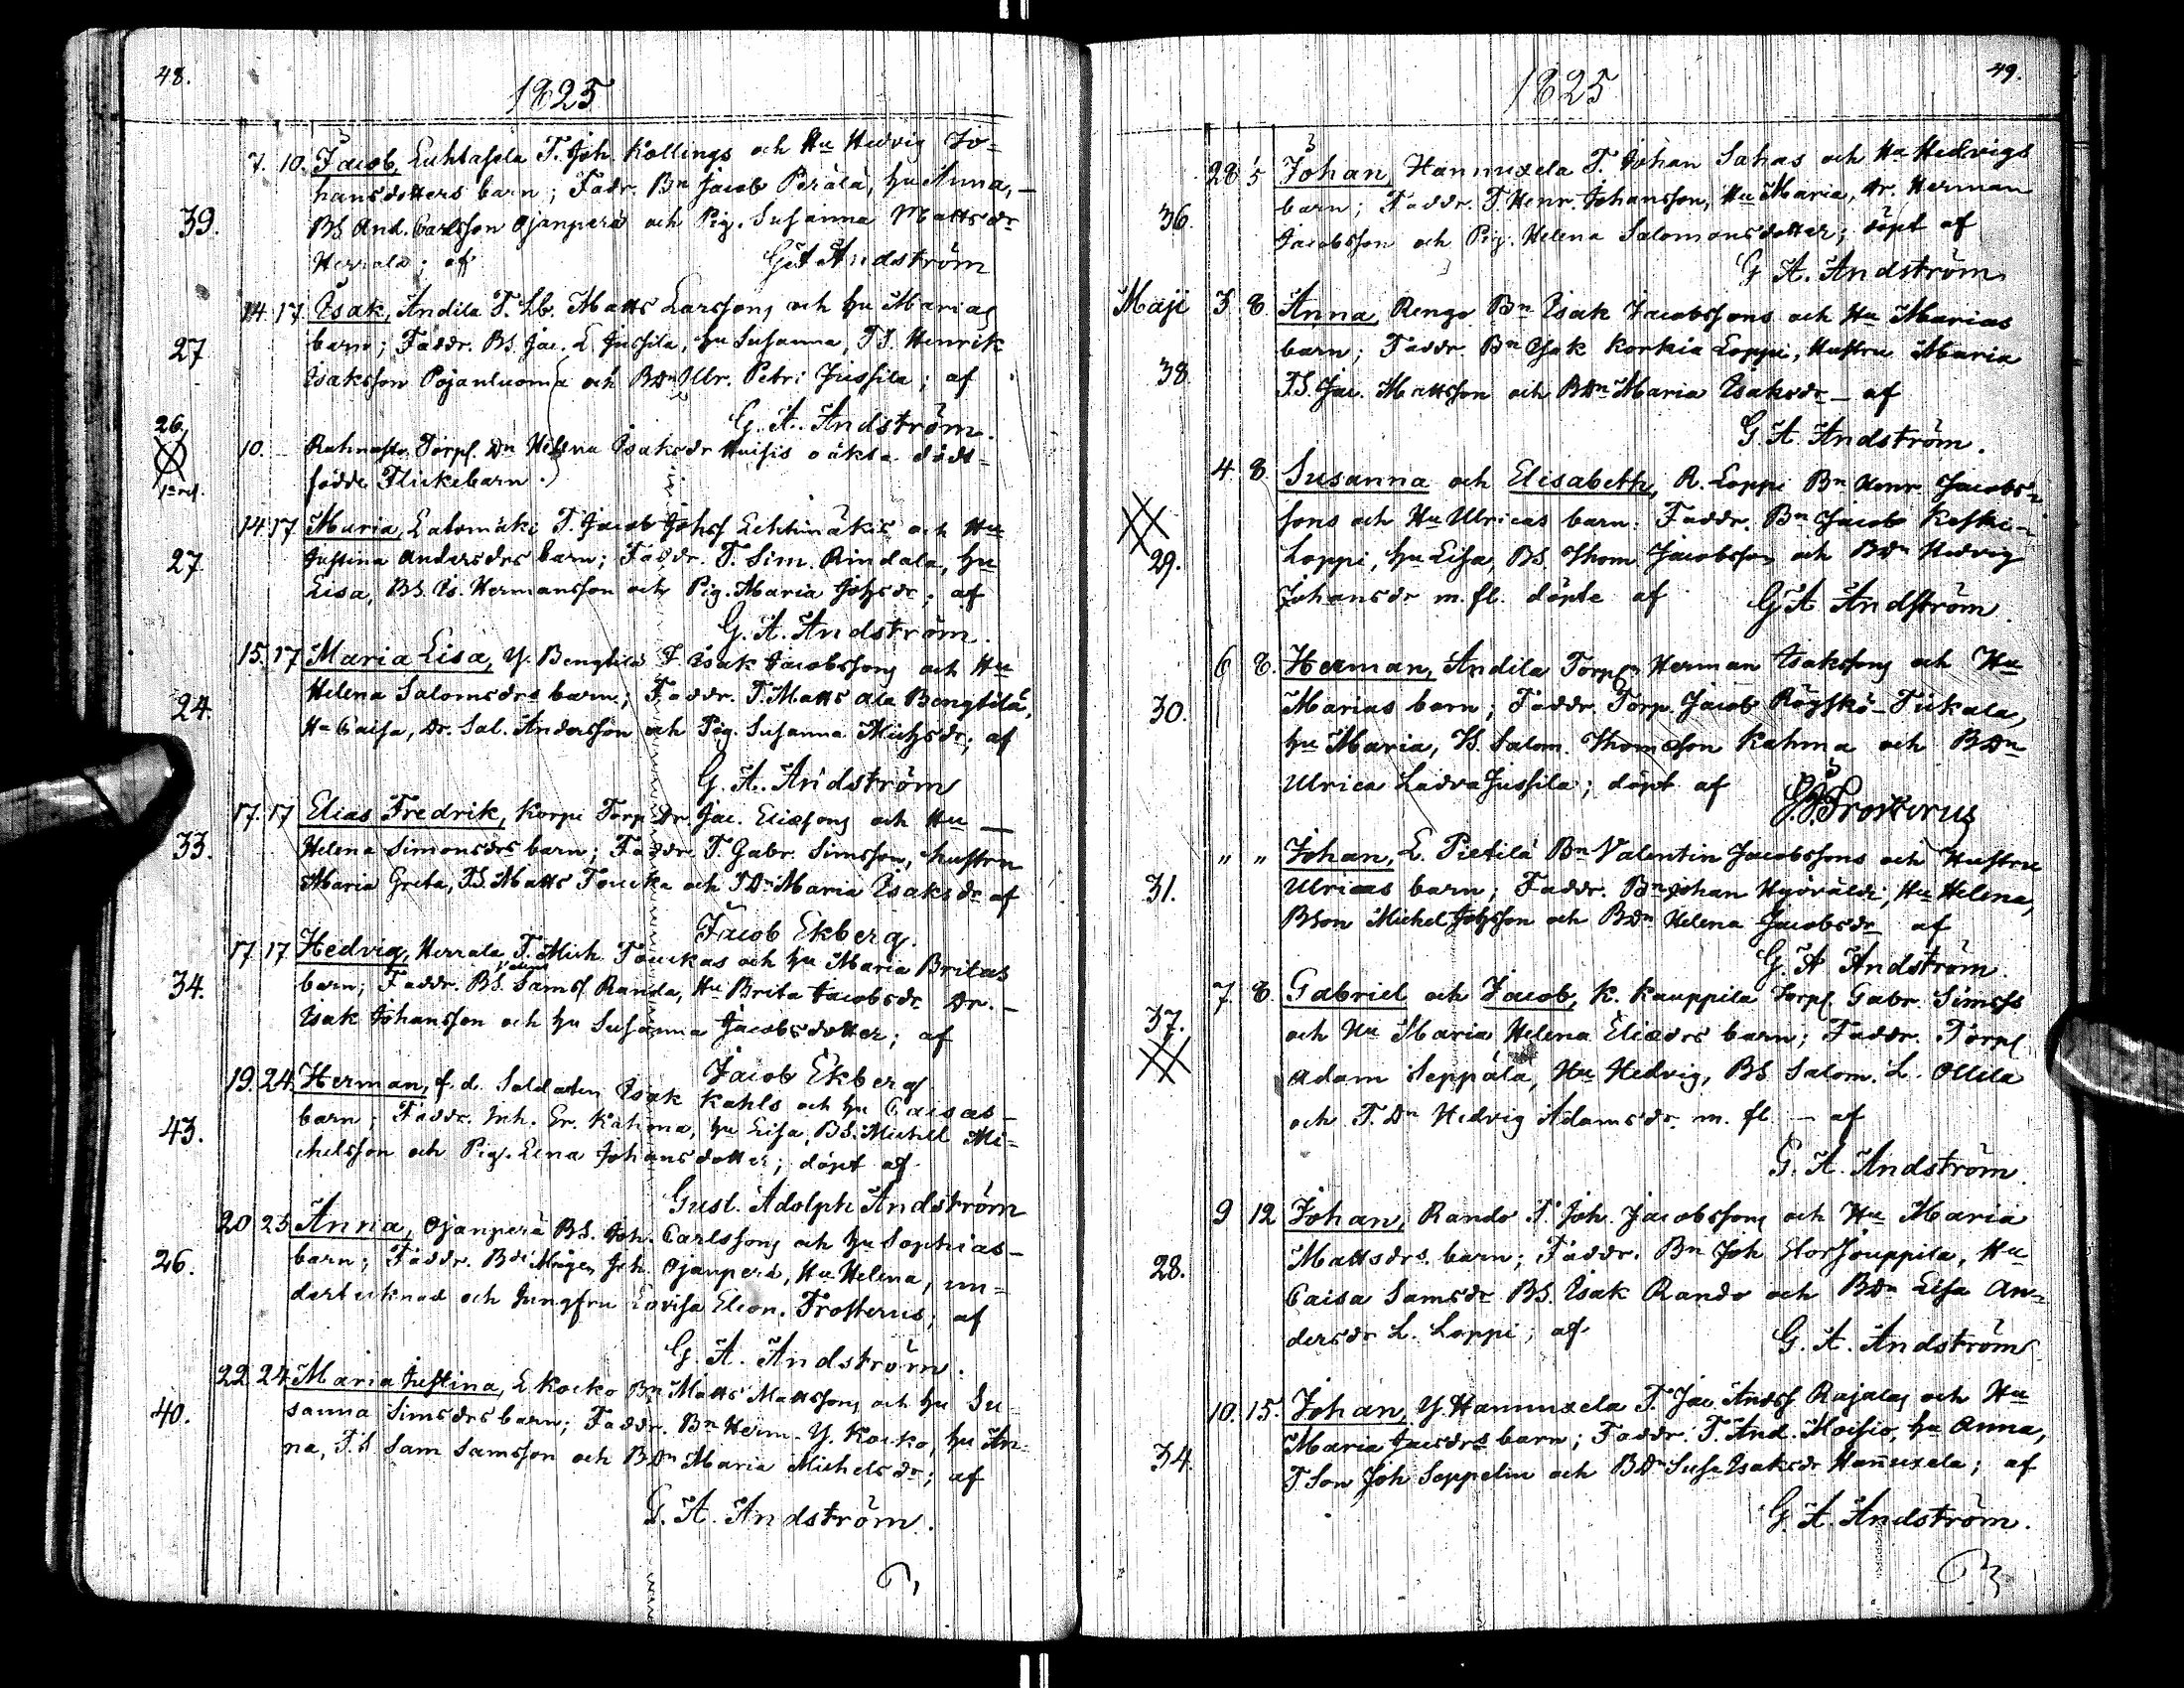 48.
1825
7. 10. Jacob, Luhtasela T. Joh. Kollings och Hu Hedvig Jo=
hansdotters barn; Faddr. Bn Jacob Perälä, hu Anna,
39. BS And. Carlsson Ojanperä och Pig. Susanna Mattsdr
Herrala; af G A Andström
14. 17. Isak, Andila T. Lb. Matts Larssons och hu Marias
27 barn; Faddr. BS. Jac. L. Jussila, hu Susanna, TS. Henrik
Isaksson Pojanluoma och BDn Ulr. Petri Jussila; af
G. A. Andström.
26. 10. Rahnasto Torpf. Dn Helena Isaksdr Huisis oäkta död=
födde Flickebarn.
14 17 Maria, Latomäki T. Jacob Johsf Lehtimäkis och Hu
27 Justina Andersdrs barn; Faddr. T. Sim. Rindala, hu
Lisa, BS. Is. Hermansson och Pig. Maria Johsdr; af
G. A. Andström.
15. 17 Maria Lisa, Y. Bengtilä T. Isak Jacobssons och Hu
Helena Salomsdrs barn; Faddr. T. Matts Ala Bengtilä,
24. Hu Caisa, Dr. Sal. Andersson och Pig. Susanna Michsdr; af
G. A. Andström
17. 17 Elias Fredrik, Korpi Torp Dr. Jac. Eliæsons och Hu
33. Helena Simonsdrs barn; Faddr. T. Gabr. Simsson, hustru
Maria Greta, TS. Matts Toucka och TDr Maria Isaksdr af
Jacob Ekberg.
17. 17 Hedvig, Herrala T. Mich. Touckas och hu Maria Britas
34. barn; Faddr. BS. Samsf Randa, Hu Brita Jacobsdr Dr.
Isak Johansson och hu Susanna Jacobsdotter; af
Jacob Ekberg
19. 24. Herman, f. d. Soldaten Isak Kahls och hu Caisas
43. barn; Faddr. Inh. Er. Kahma, hu Lisa, BS. Michel Mi=
chelsson och Pig. Lena Johansdotter; döpt af
Gust. Adolph Andström
20 23 Anna, Ojanperä BS. Joh. Carlssons och hu Sophias
26. barn; Faddr. Bde Mågen Joh. Ojanperä, Hu Helena, un=
dertecknad och Jungfru Lovisa Eleon. Frosterus; af
G. A. Andström.
22 24 Maria Justina, L. Kocko Bn Matts Mattssons och hu Su=
40. sanna Simsdrs barn; Faddr. Bn Herm. Y. Kocko, hu An=
na, T.S Sam Samsson och BDn Maria Michelsdr; af
G. A. Andström.
49.
1825
28 5 Johan, Hannuxela T. Johan Sahas och Hu Hedvigs
36. barn; Faddr. T Henr. Johansson, Hu Maria, Dr. Herman
Jacobsson och Pig. Helena Salomonsdotter; döpt af
G A. Andström
Maji 3 8. Anna, Rengo Bn Isak Jacobssons och Hu Marias
38. barn; Faddr. Bn Isak Korkia Loppi, Hustru Maria
TS. Jac. Mattsson och BDn Maria Isaksdr – af
G A Andström.
4 8 Susanna och Elisabeth, R. Loppi Bn Henr. Jacobs=
sons och Hu Ulricas barn: Faddr. Bn Jacob Keski=
29. Loppi, hu Lisa, BS. Thom Jacobsson och BDn Hedvig
Johansdr m. fl. döpte af G A Andström.
6 8. Herman, Andila Torpf Herman Isakssons och Hu
30. Marias barn; Faddr. Torp. Jacob Röyskö-Tiikala,
hu Maria, Salom. Thomæson Kahma och BDn
Ulrica LadvaJussila; döpt af Frosterus
" " Johan, L. Pietilä Bn Valentin Jacobssons och Hustru
31. Ulricas barn; Faddr. Bn Johan Hyöväldi, Hu Helena,
BSon Michel Johsson och BDn Helena Jacobsdr af
G. A Andström.
7. 8. Gabriel och Jacob, K. Kauppila Torpf Gabr. Simss
37. och Hu Maria Helena Eliædrs barn; Faddr. Torpf
Adam Seppälä, Hu Hedvig, BS Salom. L. Ollila
och T. Dn Hedvig Adamsdr. m. fl. – af
G. A. Andström.
9 12 Johan, Rando T. Joh. Jacobssons och Hu Maria
28. Mattsdrs barn; Faddr. Bn Joh StorJouppila, Hu
Caisa Samsdr BS. Isak Rando och BDn Lisa An=
dersdr L. Loppi; af G. A. Andström
10. 15. Johan, Y. Hannuxela T. Jac. Andsf Rajalas och Hu
34. Maria Jacsdrs barn; Faddr. T. And. Moisio, hu Anna,
T Son Joh Seppelin och BDr Susa Isaksdr Hannuxela; af
G. A. Andström.